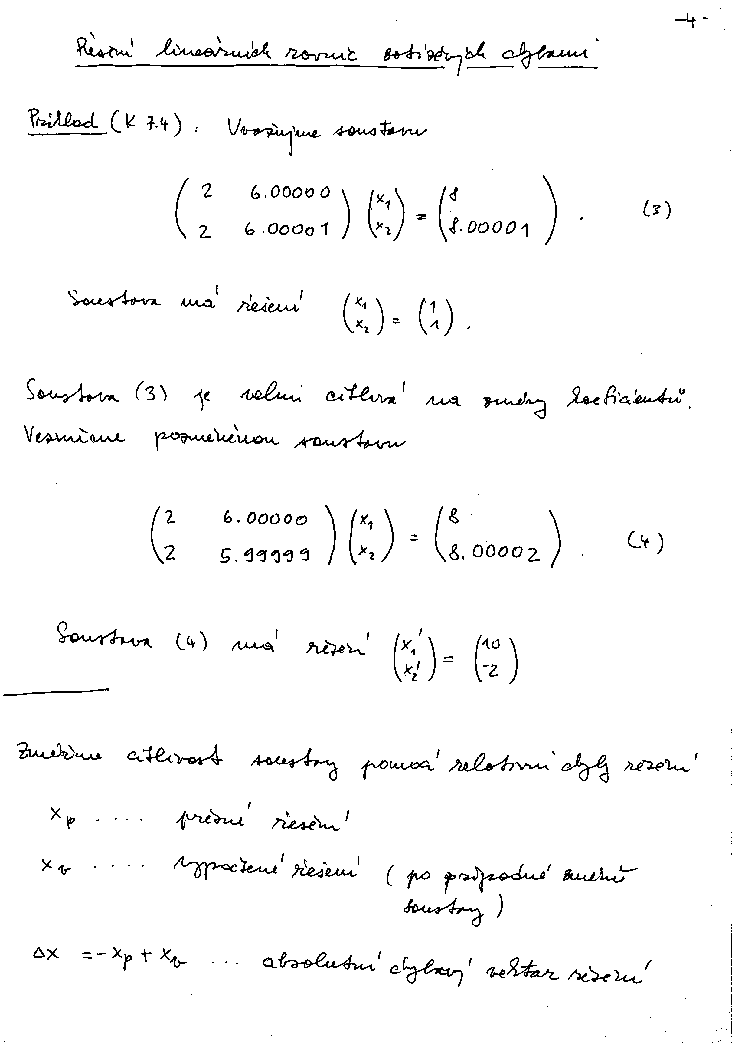 -4-
Řešení lineárních rovnic zatížených chybami
Příklad (K 7.4). Uvažujme soustavu
( 2 6.00000 ) ( x₁ ) = ( 8 )
( 2 6.00001 ) ( x₂ ) = ( 8.00001 ) . (3)
Soustava má řešení ( x₁ x₂ ) = ( 1 1 ) .
Soustava (3) je velmi citlivá na změny koeficientů.
Vezměme pozměněnou soustavu
( 2 6.00000 ) ( x₁ ) = ( 8 )
( 2 5.99999 ) ( x₂ ) = ( 8.00002 ) . (4)
Soustava (4) má řešení ( x₁' x₂' ) = ( 10 -2 )
Změříme citlivost soustavy pomocí relativní chyby řešení
x_p .... přesné řešení
x_v .... vypočtené řešení ( po případné změně
soustavy )
Δx = -x_p + x_v ... absolutní chybový vektor řešení